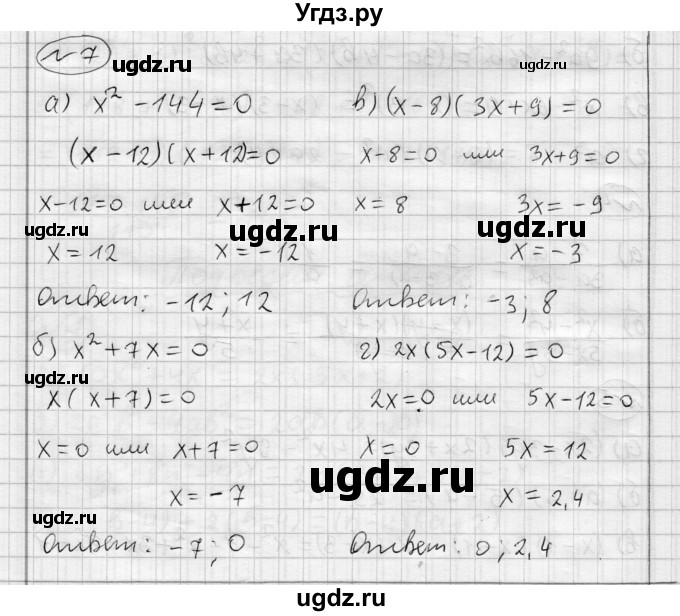 Угдз.ру
№7
ugdz.ru
ugdz.ru
а) x² - 144 = 0
(x - 12)(x + 12) = 0
x - 12 = 0 или x + 12 = 0
ugdz.ru
x = 12 x = -12
Ответ: -12; 12
б) x² + 7x = 0
ugdz.ru
x(x + 7) = 0
x = 0 или x + 7 = 0
x = -7
ugdz.ru
Ответ: -7; 0
в) (x - 8)(3x + 9) = 0
x - 8 = 0 или 3x + 9 = 0
x = 8 3x = -9
ugdz.ru
ugdz.ru
x = -3
Ответ: -3; 8
г) 2x(5x - 12) = 0
2x = 0 или 5x - 12 = 0
x = 0 5x = 12
ugdz.ru
x = 2,4
Ответ: 0; 2,4
Угдз.ру